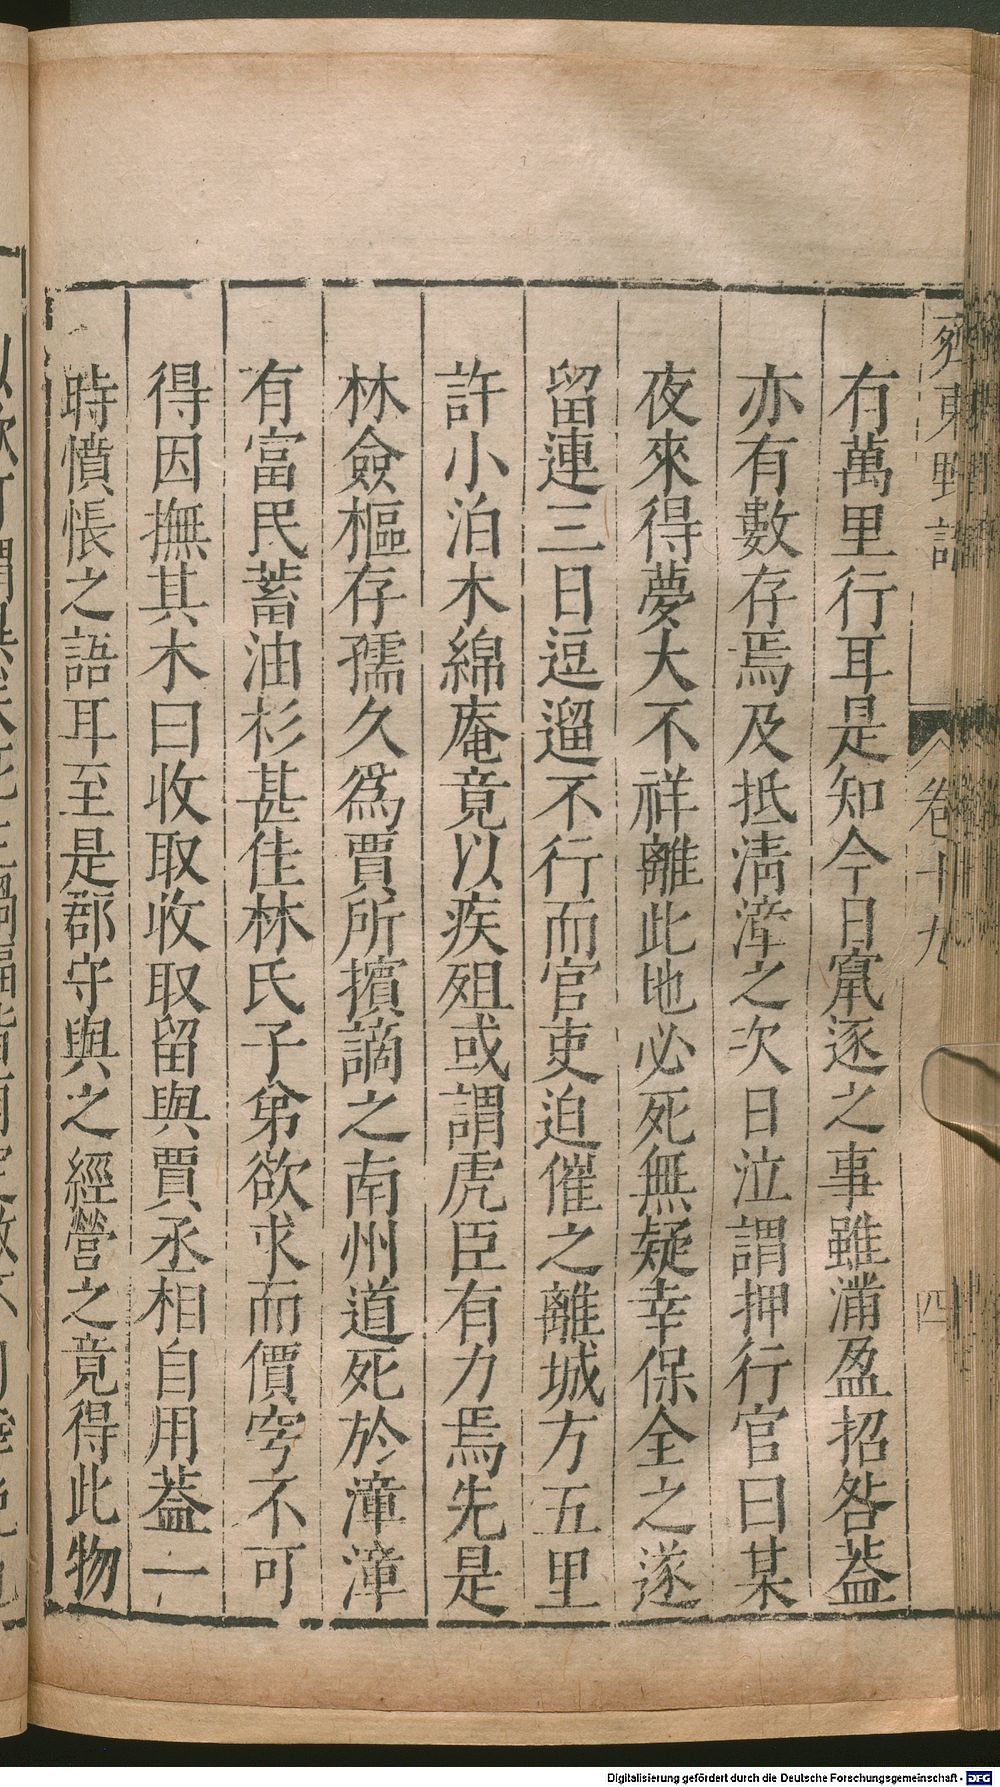 齊東野語
卷十九
四
有萬里行耳是知今日竄逐之事雖滿盈招咎葢
亦有數存焉及抵清漳之次日泣謂押行官曰某
夜來得夢大不祥離此地必死無疑幸保全之遂
留連三日逗遛不行而官吏迫催之離城方五里
許小泊木綿庵竟以疾殂或謂虎臣有力焉先是
林僉樞存孺久爲賈所擯謫之南州道死於漳漳
有富民蓄油杉甚佳林氏子弟欲求而價穹不可
得因撫其木曰收取收取留與賈丞相自用葢一
時憤悵之語耳至是郡守與之經營之竟得此物
Digitalisierung gefördert durch die Deutsche Forschungsgemeinschaft - DFG